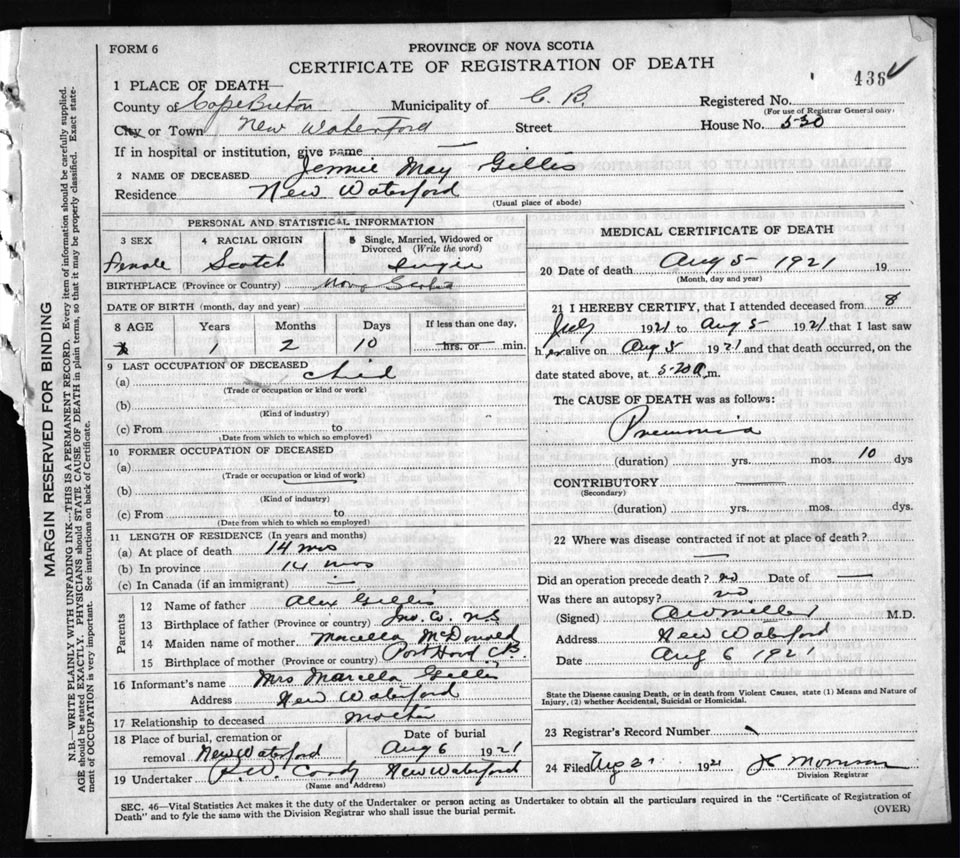 FORM 6
PROVINCE OF NOVA SCOTIA
CERTIFICATE OF REGISTRATION OF DEATH
436
1 PLACE OF DEATH—
County of Cape Breton Municipality of C. B. Registered No.
(For use of Registrar General only)
City or Town New Waterford Street House No. 530
If in hospital or institution, give name —
2 NAME OF DECEASED Jennie May Gillis
Residence New Waterford
(Usual place of abode)
PERSONAL AND STATISTICAL INFORMATION
3 SEX 4 RACIAL ORIGIN 5 Single, Married, Widowed or Divorced (Write the word)
Female Scotch Single
BIRTHPLACE (Province or Country) Nova Scotia
DATE OF BIRTH (month, day and year)
8 AGE Years Months Days If less than one day,
1 2 10 hrs. or min.
9 LAST OCCUPATION OF DECEASED
(a) child
(Trade or occupation or kind or work)
(b)
(Kind of industry)
(c) From to
(Date from which to which so employed)
10 FORMER OCCUPATION OF DECEASED
(a)
(Trade or occupation or kind of work)
(b)
(Kind of industry)
(c) From to
(Date from which to which so employed)
11 LENGTH OF RESIDENCE (In years and months)
(a) At place of death 14 mos
(b) In province 14 mos
(c) In Canada (if an immigrant) —
Parents
12 Name of father Alex Gillis
13 Birthplace of father (Province or country) Inv. Co. N.S
14 Maiden name of mother Marcella McDonald
15 Birthplace of mother (Province or country) Port Hood CB.
16 Informant's name Mrs Marcella Gillis
Address New Waterford
17 Relationship to deceased mother
18 Place of burial, cremation or removal New Waterford Date of burial Aug 6 1921
19 Undertaker New Waterford
(Name and Address)
MEDICAL CERTIFICATE OF DEATH
20 Date of death Aug 5 1921 19
(Month, day and year)
21 I HEREBY CERTIFY, that I attended deceased from 8
July 1921 to Aug 5 1921 that I last saw
her alive on Aug 5 1921 and that death occurred, on the
date stated above, at 5-20 a.m.
The CAUSE OF DEATH was as follows:
Pneumonia
(duration) yrs. mos. 10 dys
CONTRIBUTORY —
(Secondary)
(duration) yrs. mos. dys.
22 Where was disease contracted if not at place of death?
—
Did an operation precede death? no Date of —
Was there an autopsy? no
(Signed) M.D.
Address New Waterford
Date Aug 6 1921
State the Disease causing Death, or in death from Violent Causes, state (1) Means and Nature of
Injury, (2) whether Accidental, Suicidal or Homicidal.
23 Registrar's Record Number
24 Filed Aug 1921
Division Registrar
SEC. 46—Vital Statistics Act makes it the duty of the Undertaker or person acting as Undertaker to obtain all the particulars required in the "Certificate of Registration of
Death" and to fyle the same with the Division Registrar who shall issue the burial permit. (OVER)
MARGIN RESERVED FOR BINDING
N.B.—WRITE PLAINLY WITH UNFADING INK—THIS IS A PERMANENT RECORD. Every item of information should be carefully supplied.
AGE should be stated EXACTLY. PHYSICIANS should STATE CAUSE OF DEATH in plain terms, so that it may be properly classified. Exact state-
ment of OCCUPATION is very important. See instructions on back of Certificate.